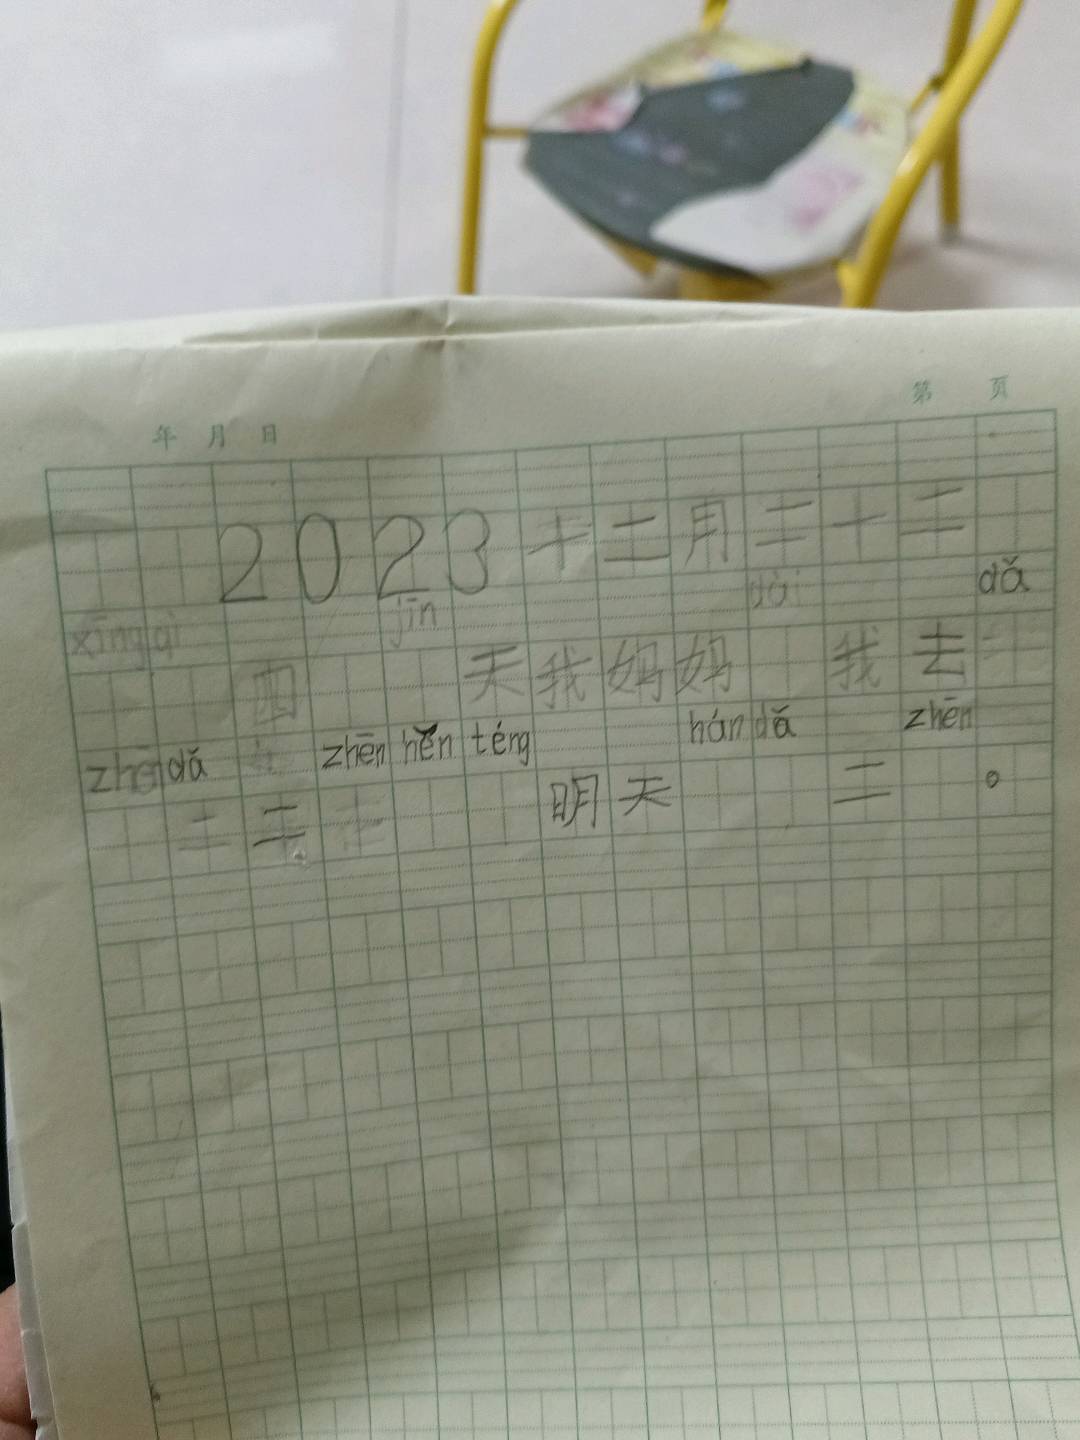 第 页
年 月 日
2023十二月二十二
xīng qì jīn dài dǎ
四 天我妈妈 我去
zhēn dǎ zhēn hěn téng hán dǎ zhēn
二 明天 二 。